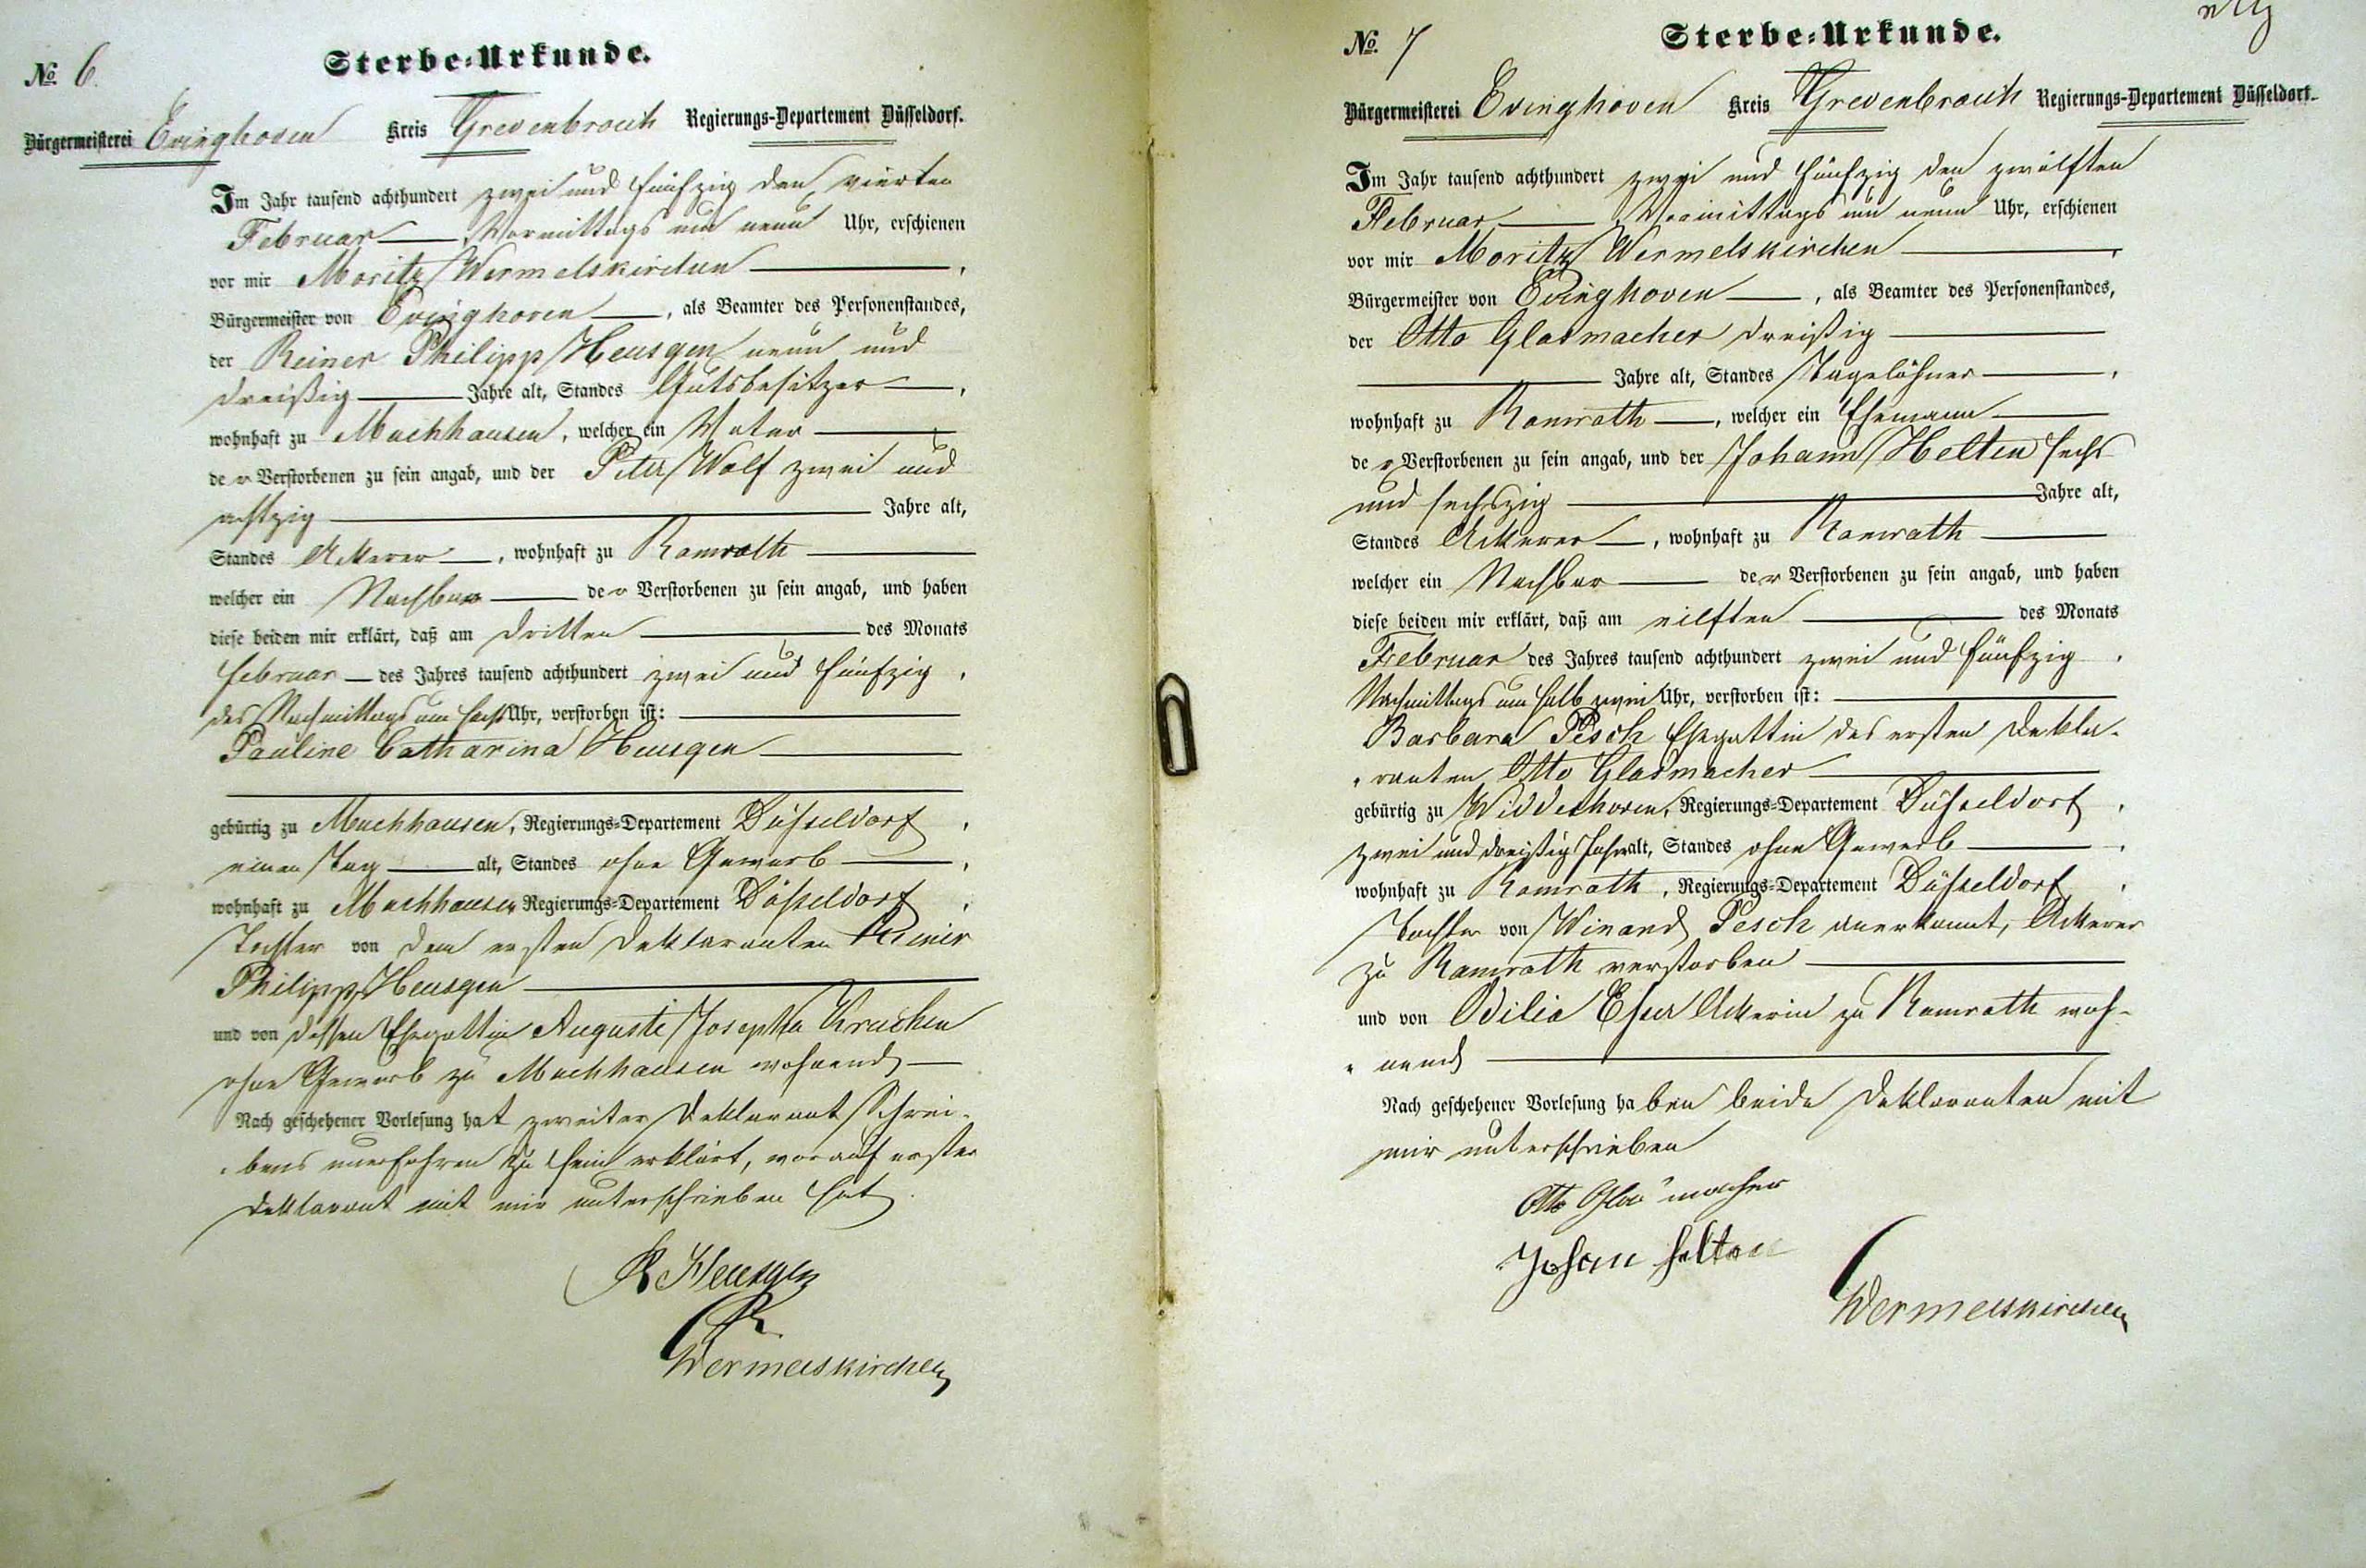 No 6.
Sterbe-Urkunde.
Bürgermeisterei Evinghoven Kreis Grevenbroich Regierungs-Departement Düsseldorf.
Im Jahr tausend achthundert zwei und fünfzig den vierten
Februar Vormittags um neun Uhr, erschienen
vor mir Moritz Wermelskirchen,
Bürgermeister von Evinghoven, als Beamter des Personenstandes,
der Reiner Philipp Heusgen neun und
dreißig Jahre alt, Standes Gutsbesitzer,
wohnhaft zu Muchhausen, welcher ein Vater
der Verstorbenen zu sein angab, und der Peter Wolf zwei und
achtzig Jahre alt,
Standes Ackerer, wohnhaft zu Ramrath
welcher ein Nachbar der Verstorbenen zu sein angab, und haben
diese beiden mir erklärt, daß am dritten des Monats
Februar des Jahres tausend achthundert zwei und fünfzig,
des Nachmittags um sechs Uhr, verstorben ist:
Pauline Catharina Heusgen
gebürtig zu Muchhausen, Regierungs-Departement Düsseldorf,
einen Tag alt, Standes ohne Gewerb,
wohnhaft zu Muchhausen Regierungs-Departement Düsseldorf,
Tochter von dem ersten Deklaranten Reiner
Philipp Heusgen
und von dessen Ehegattin Auguste Josepha Kruchen
ohne Gewerb zu Muchhausen wohnend
Nach geschehener Vorlesung hat zweiter Deklarant Schrei-
bens unerfahren zu sein erklärt, worauf erster
Deklarant mit mir unterschrieben hat.
R Heusgen
Wermelskirchen
No 7
Sterbe-Urkunde.
Bürgermeisterei Evinghoven Kreis Grevenbroich Regierungs-Departement Düsseldorf.
Im Jahr tausend achthundert zwei und fünfzig den zwölften
Februar Vormittags um neun Uhr, erschienen
vor mir Moritz Wermelskirchen,
Bürgermeister von Evinghoven, als Beamter des Personenstandes,
der Otto Glasmacher dreißig
Jahre alt, Standes Tagelöhner,
wohnhaft zu Ramrath, welcher ein Ehemann
der Verstorbenen zu sein angab, und der Johann Helten sechs
und sechszig Jahre alt,
Standes Ackerer, wohnhaft zu Ramrath
welcher ein Nachbar der Verstorbenen zu sein angab, und haben
diese beiden mir erklärt, daß am eilften des Monats
Februar des Jahres tausend achthundert zwei und fünfzig,
Nachmittags um halb zwei Uhr, verstorben ist:
Barbara Pesch Ehegattin des ersten Dekla-
ranten Otto Glasmacher
gebürtig zu Widdeshoven, Regierungs-Departement Düsseldorf,
zwei und dreißig Jahr alt, Standes ohne Gewerb,
wohnhaft zu Ramrath, Regierungs-Departement Düsseldorf,
Tochter von Winand Pesch anerkannt, Ackerer
zu Ramrath verstorben
und von Odilia Esser Ackerin zu Ramrath woh-
nend
Nach geschehener Vorlesung haben beide Deklaranten mit
mir unterschrieben
Otto Glasmacher
Johan Helten
Wermelskirchen